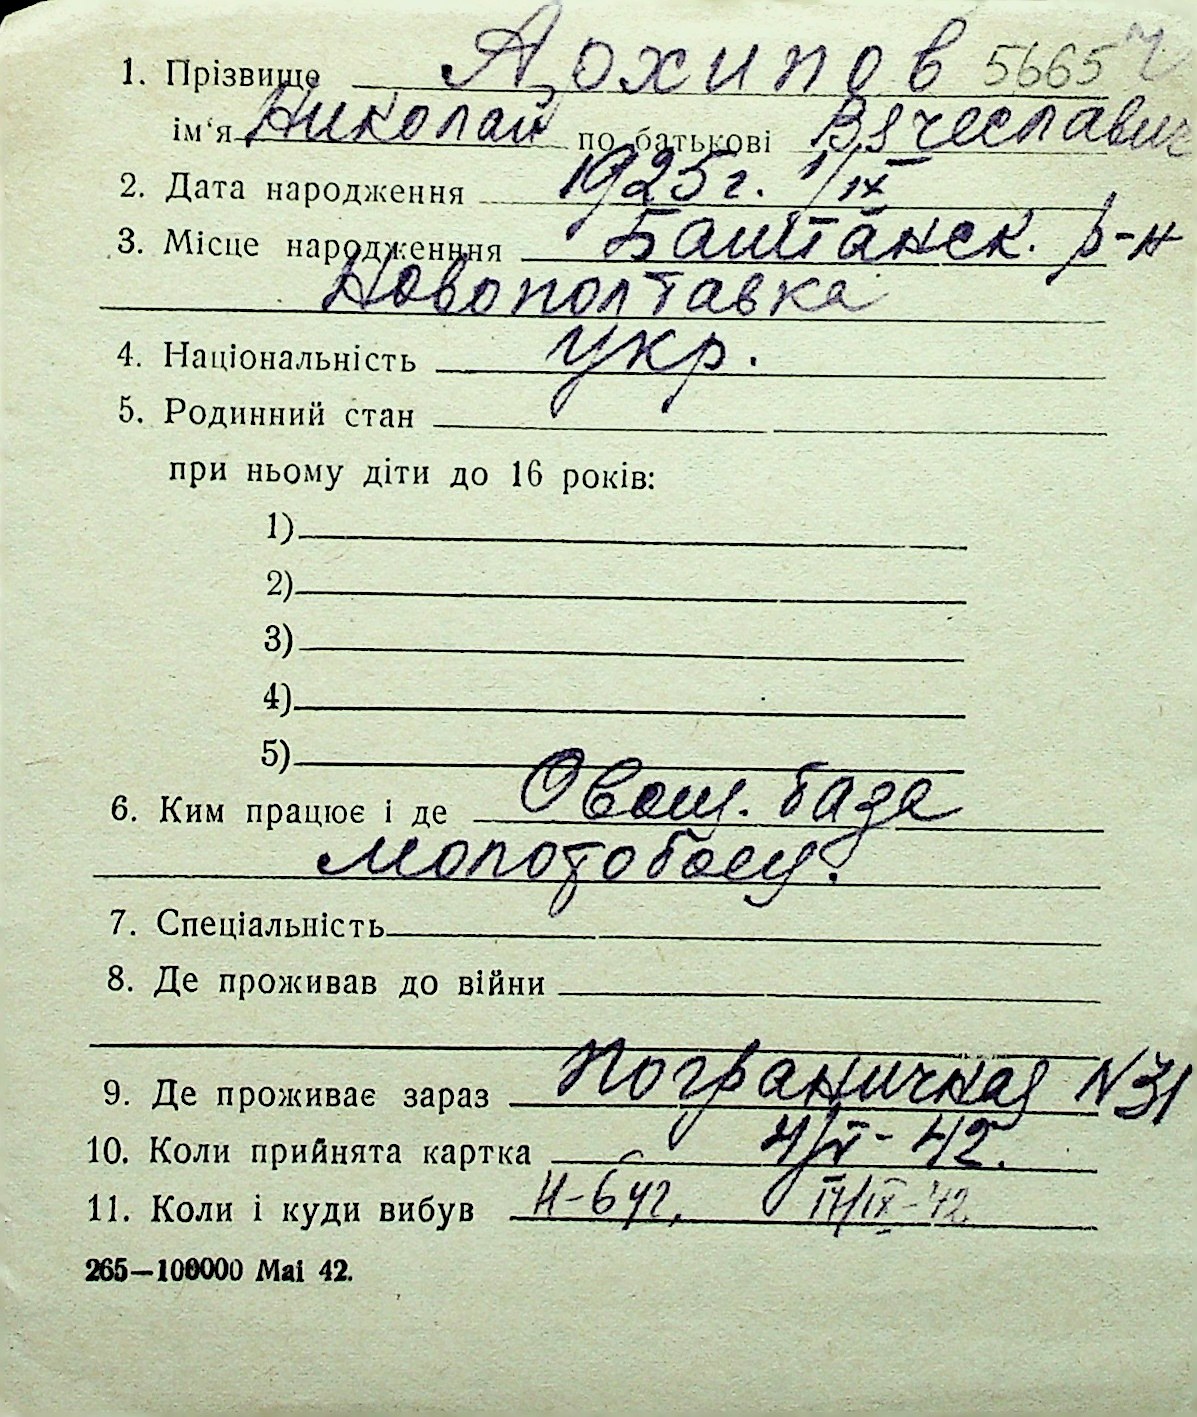 1. Прізвище Архипов 5665
ім'я Николай по батькові Вячеславич
2. Дата народження 1925г. 1/IX
3. Місце народженння Баштанск. р-н
Новополтавка
4. Національність укр.
5. Родинний стан
при ньому діти до 16 років:
1)
2)
3)
4)
5)
6. Ким працює і де Овощ. база
7. Спеціальність
8. Де проживав до війни
9. Де проживає зараз Пограничная N 31
10. Коли прийнята картка
11. Коли і куди вибув
265—100000 Mai 42.